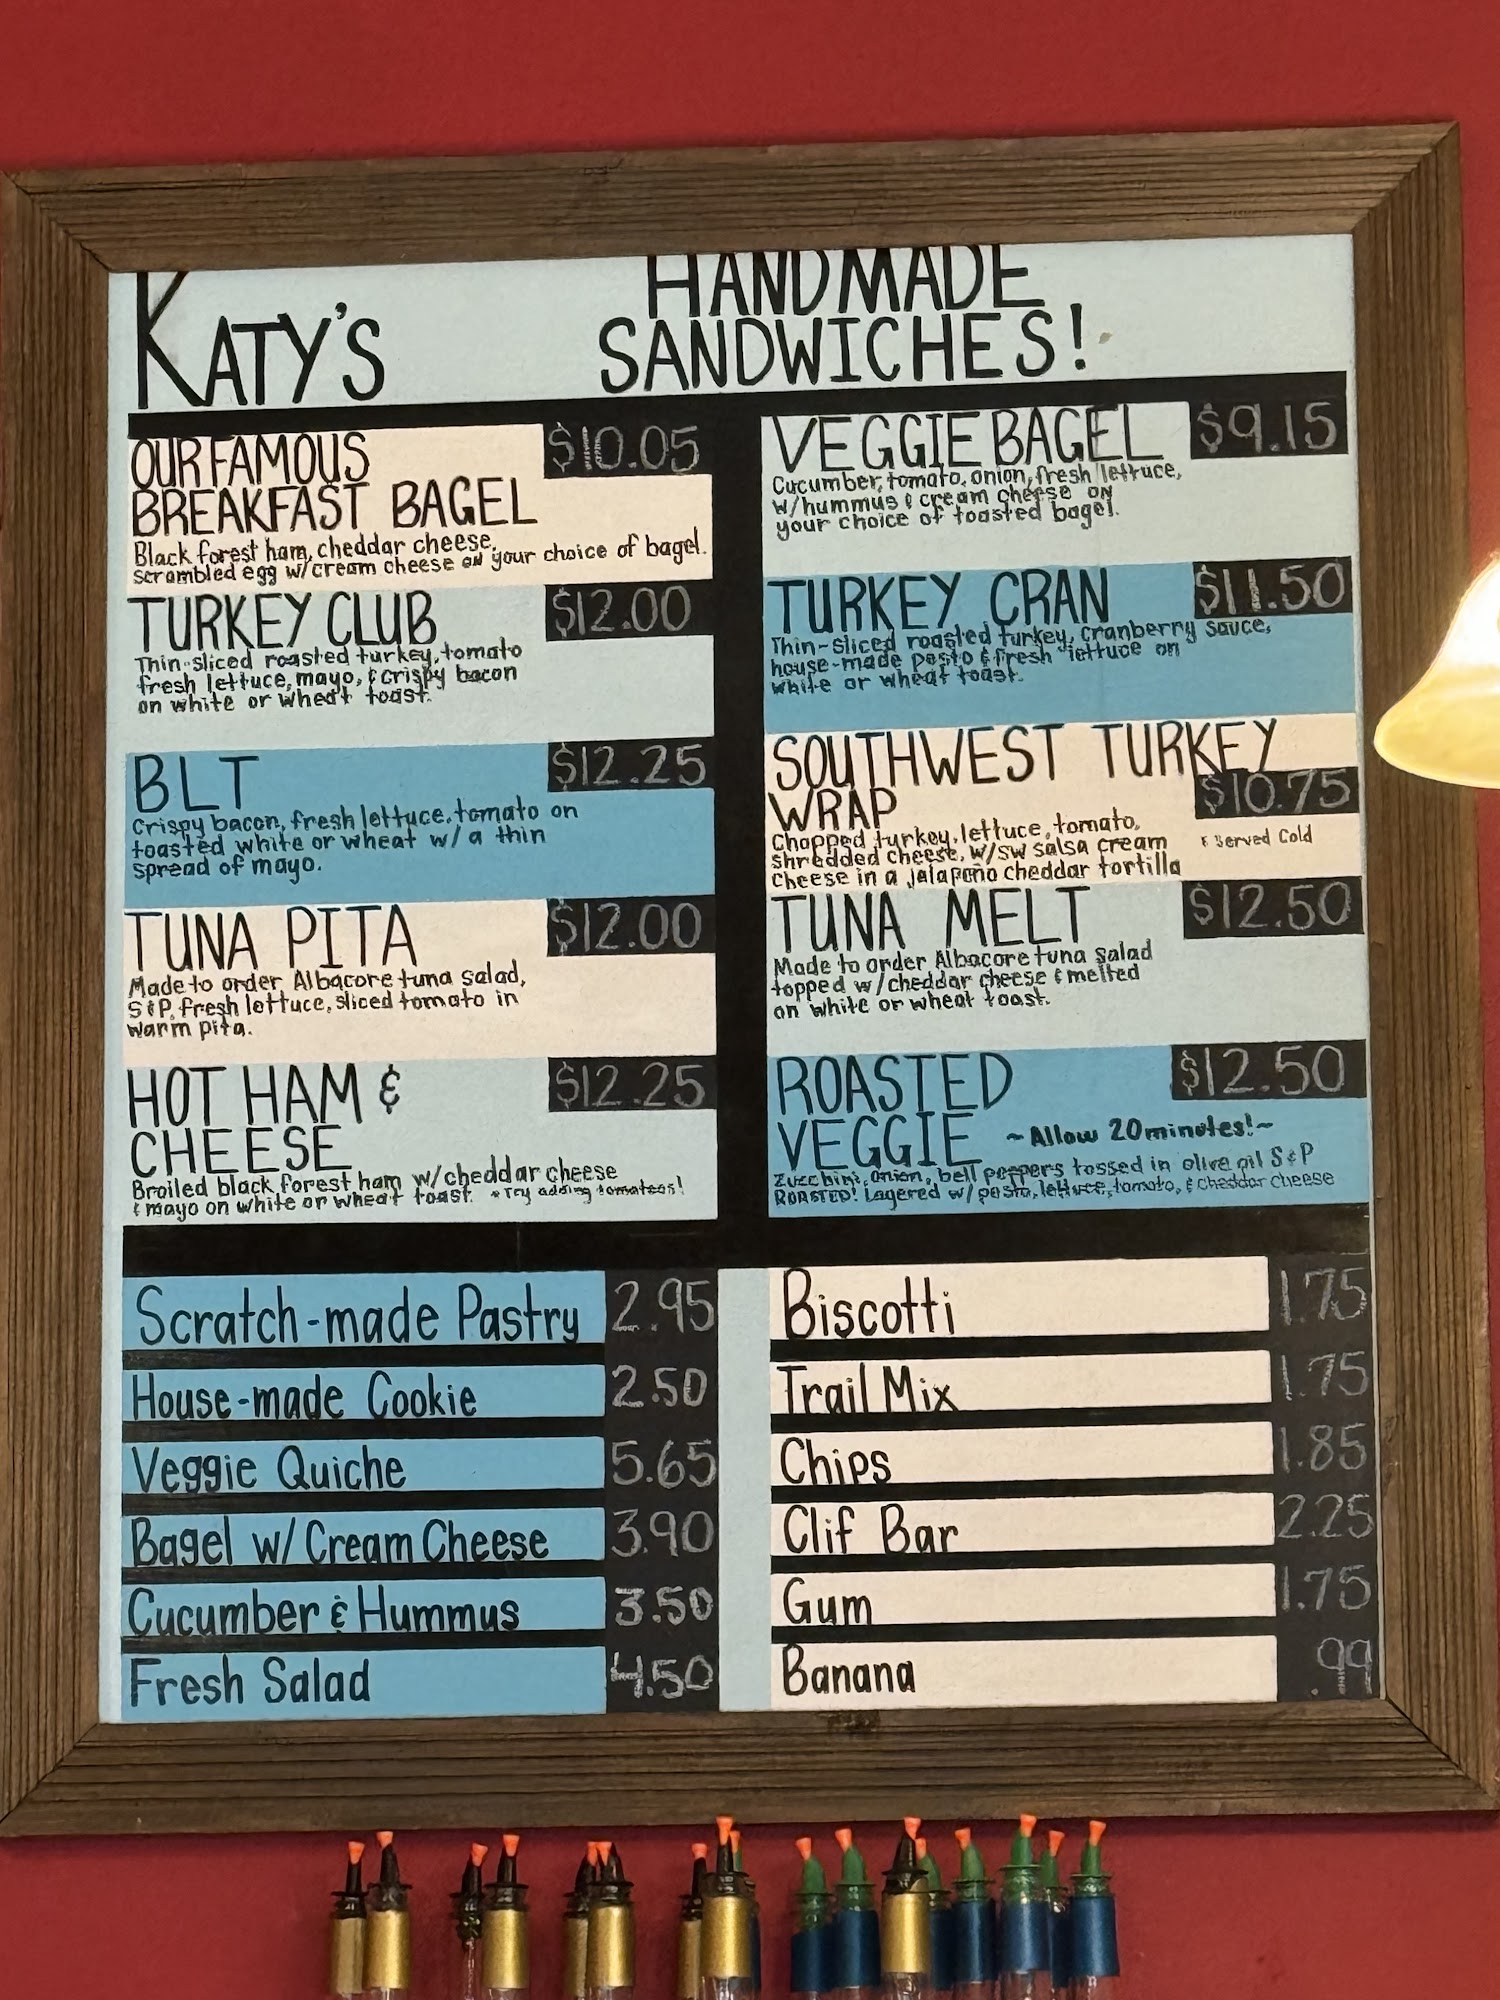 KATY'S
HANDMADE
SANDWICHES!
OUR FAMOUS
BREAKFAST BAGEL
$10.05
Black forest ham, cheddar cheese,
scrambled egg w/cream cheese on your choice of bagel.
TURKEY CLUB
$12.00
Thin-sliced roasted turkey, tomato
fresh lettuce, mayo, & crispy bacon
on white or wheat toast.
BLT
$12.25
Crispy bacon, fresh lettuce, tomato on
toasted white or wheat w/ a thin
spread of mayo.
TUNA PITA
$12.00
Made to order Albacore tuna salad,
S&P, fresh lettuce, sliced tomato in
warm pita.
HOT HAM &
CHEESE
$12.25
Broiled black forest ham w/cheddar cheese
& mayo on white or wheat toast. *Try adding tomatoes!
VEGGIE BAGEL
$9.15
Cucumber, tomato, onion, fresh lettuce,
w/hummus & cream cheese on
your choice of toasted bagel.
TURKEY CRAN
$11.50
Thin-sliced roasted turkey, cranberry sauce,
house-made pesto & fresh lettuce on
white or wheat toast.
SOUTHWEST TURKEY
WRAP
$10.75
Chopped turkey, lettuce, tomato,
shredded cheese, w/SW salsa cream
cheese in a jalapeño cheddar tortilla
& Served Cold
TUNA MELT
$12.50
Made to order Albacore tuna salad
topped w/cheddar cheese & melted
on white or wheat toast.
ROASTED
VEGGIE
$12.50
~Allow 20 minutes!~
Zucchini, onion, bell peppers tossed in olive oil S&P
ROASTED! Layered w/ pesto, lettuce, tomato, & cheddar cheese
Scratch-made Pastry 2.95
House-made Cookie 2.50
Veggie Quiche 5.65
Bagel w/ Cream Cheese 3.90
Cucumber & Hummus 3.50
Fresh Salad 4.50
Biscotti 1.75
Trail Mix 1.75
Chips 1.85
Clif Bar 2.25
Gum 1.75
Banana .99